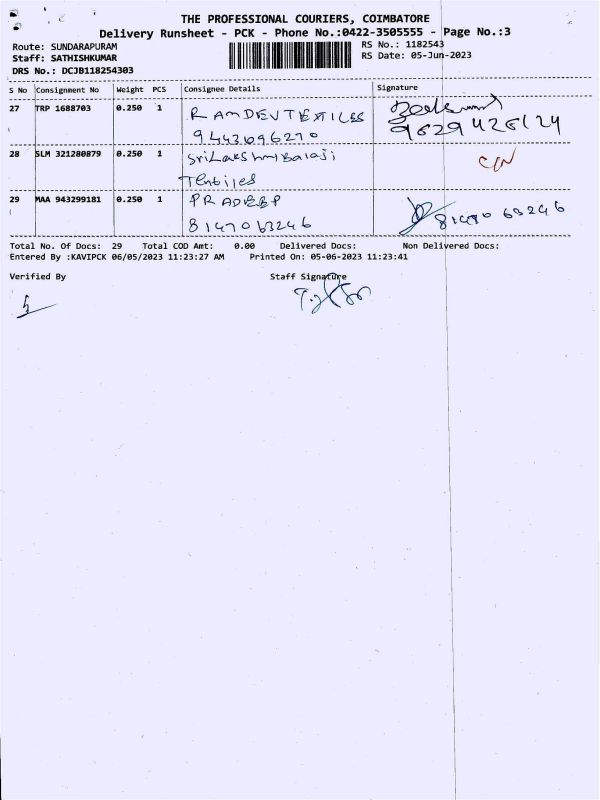 THE PROFESSIONAL COURIERS, COIMBATORE
Delivery Runsheet - PCK - Phone No.:0422-3505555 - Page No.:3
Route: SUNDARAPURAM
Staff: SATHISHKUMAR
DRS No.: DCJB118254303
RS No.: 1182543
RS Date: 05-Jun-2023
S No Consignment No Weight PCS Consignee Details Signature
27 TRP 1688703 0.250 1 RAMDEV TEXTILES
9443696270
9629428124
28 SLM 321280879 0.250 1 Sri Lakshmi Balaji
CN
29 MAA 943299181 0.250 1 PRADEEP
8147063246
81470 63246
Total No. Of Docs: 29 Total COD Amt: 0.00 Delivered Docs: Non Delivered Docs:
Entered By :KAVIPCK 06/05/2023 11:23:27 AM Printed On: 05-06-2023 11:23:41
Verified By Staff Signature